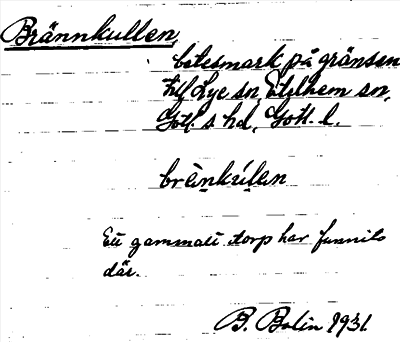 Brännkullen,
betesmark på gränsen
till Lye sn, Etelhem sn,
Gotl. s. hd, Gotl. l.
brä̀nkúlen
Ett gammalt torp har funnits
där.
B. Bolin 1931